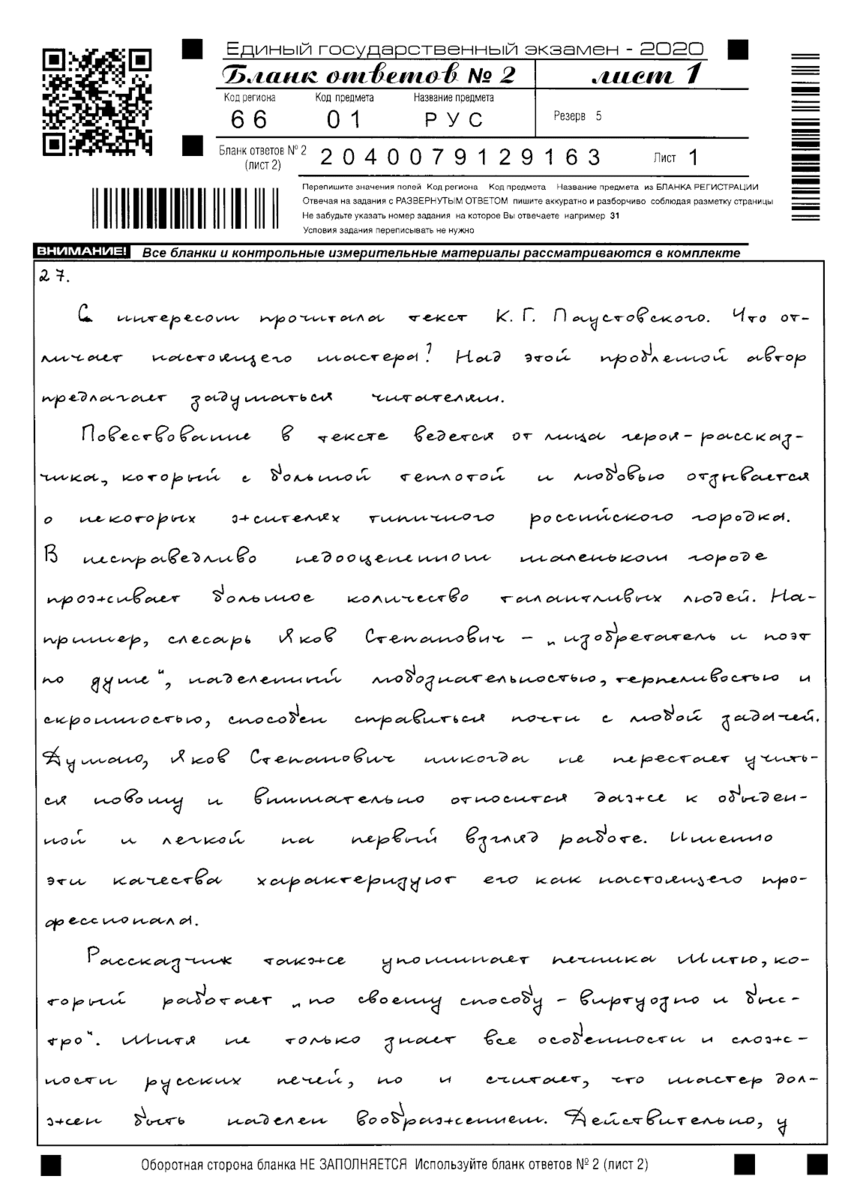 Единый государственный экзамен - 2020
Бланк ответов № 2 лист 1
Код региона Код предмета Название предмета
66 01 РУС Резерв 5
Бланк ответов № 2 (лист 2) 2040079129163 Лист 1
Перепишите значения полей Код региона Код предмета Название предмета из БЛАНКА РЕГИСТРАЦИИ
Отвечая на задания с РАЗВЕРНУТЫМ ОТВЕТОМ пишите аккуратно и разборчиво соблюдая разметку страницы
Не забудьте указать номер задания на которое Вы отвечаете например 31
Условия задания переписывать не нужно
ВНИМАНИЕ! Все бланки и контрольные измерительные материалы рассматриваются в комплекте
27.
С интересом прочитала текст К.Г. Паустовского. Что от-
личает настоящего мастера? Над этой проблемой автор
предлагает задуматься читателям.
Повествование в тексте ведется от лица героя-рассказ-
чика, который с большой теплотой и любовью отзывается
о некоторых жителях типичного российского городка.
В несправедливо недооцененном маленьком городе
проживает большое количество талантливых людей. На-
пример, слесарь Яков Степанович – „изобретатель и поэт
по душе“, наделенный любознательностью, терпеливостью и
скромностью, способен справиться почти с любой задачей.
Думаю, Яков Степанович никогда не перестает учить-
ся новому и внимательно относится даже к обыден-
ной и легкой на первый взгляд работе. Именно
эти качества характеризуют его как настоящего про-
фессионала.
Рассказчик также упоминает печника Митю, ко-
торый работает „по своему способу – виртуозно и быс-
тро“. Митя не только знает все особенности и слож-
ности русских печей, но и считает, что мастер дол-
жен быть наделен воображением. Действительно, у
Оборотная сторона бланка НЕ ЗАПОЛНЯЕТСЯ Используйте бланк ответов № 2 (лист 2)